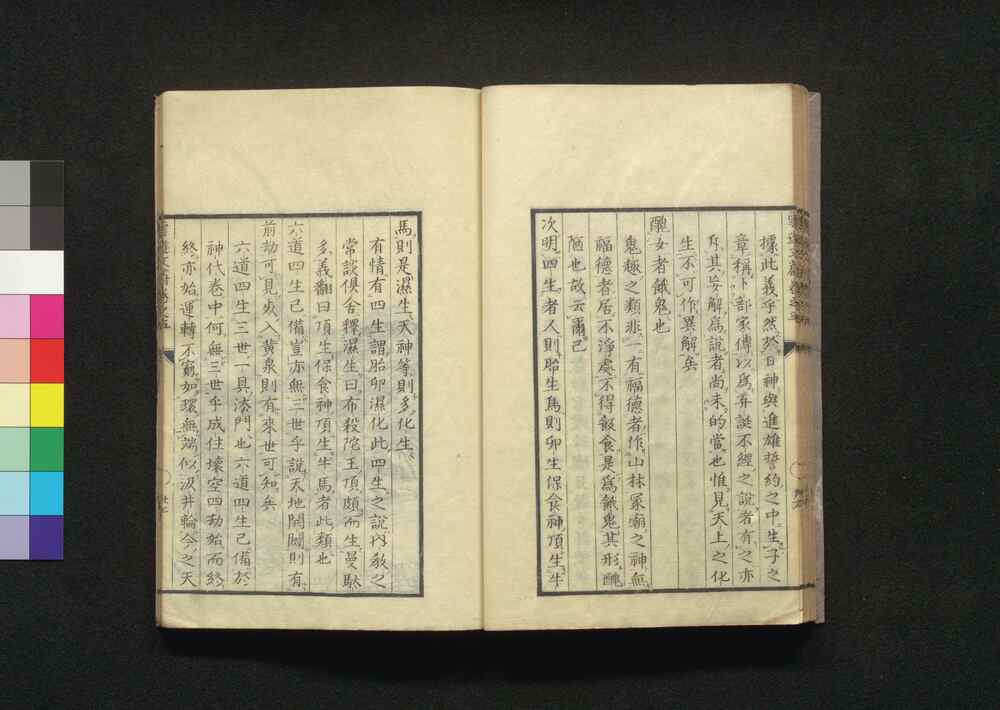 據此義乎然於日神與進雄誓約之中生子之
章稱卜部家傳以爲弄誕不經之說者有之亦
斥其妄解爲說者尚未的當也惟見天上之化
生不可作異解矣
醜女者餓鬼也
鬼趣之類非一有福德者作山林冢廟之神無
福德者居不淨處不得飲食是爲餓鬼其形醜
陋也故云爾已
次明四生者人則胎生鳥則卯生保食神頂生牛
馬則是濕生天神等則多化生
有情有四生謂胎卵濕化此四生之說内教之
常談俱舍釋濕生曰布殺陀王頂皰而生曼馱
多義翻曰頂生保食神頂生牛馬者此類也
六道四生已備豈亦無三世乎說天地開闢則有
前劫可見或入黄泉則有來世可知矣
六道四生三世一具法門也六道四生已備於
神代卷中何無三世乎成住壞空四劫始而終
終亦始運轉不窮如環無端似汲井輪今之天